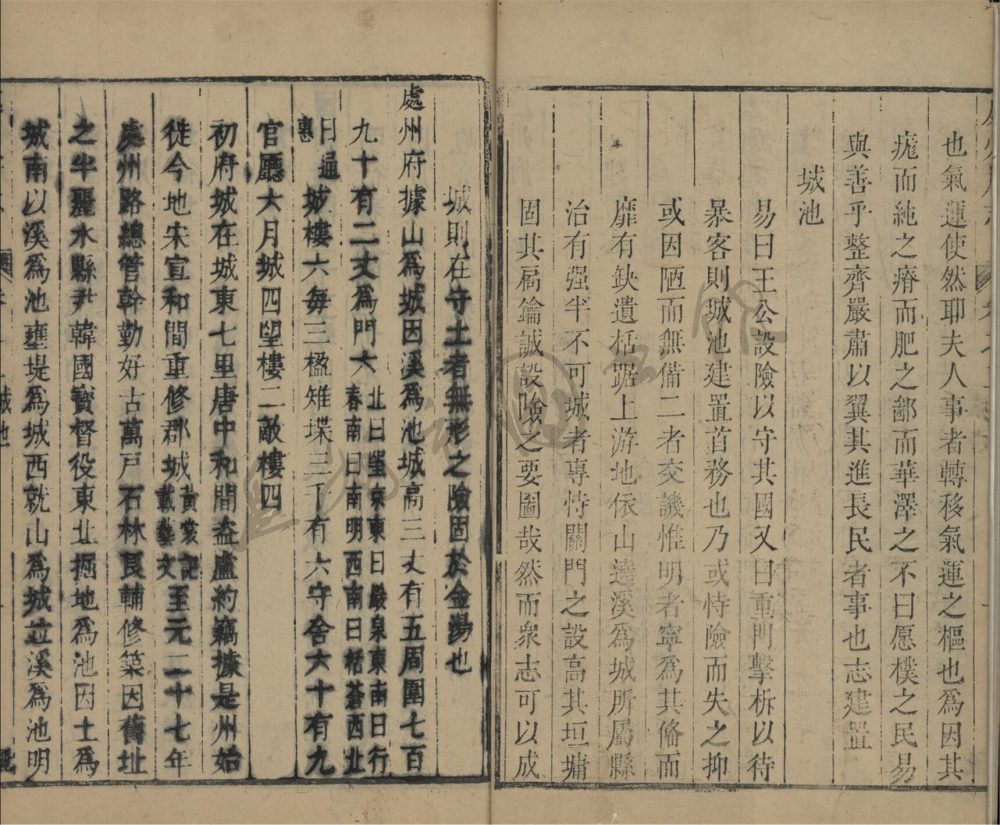 也氣運使然耶夫人事者轉移氣運之樞也為因其
痝而純之瘠而肥之鄙而華澤之不曰愿樸之民易
與善乎整齊嚴肅以翼其進長民者事也志建置
城池
易曰王公設險以守其國又曰重門擊柝以待
暴客則城池建置首務也乃或恃險而失之抑
或因陋而無備二者交譏惟明者寧為其俻而
靡有缺遺栝踞上游地依山遶溪為城所屬縣
治有强半不可城者專恃關門之設高其垣墉
固其扃鑰誠設險之要圖哉然而衆志可以成
城則在守土者無形之險固於金湯也
處州府據山為城因溪為池城高三丈有五周圍七百
九十有二丈為門六北曰望京東曰巖泉東南曰行
春南曰南明西南曰栝蒼西北
曰通
惠城樓六每三楹雉堞三千有六守舍六十有九
官廳六月城四望樓二敵樓四
初府城在城東七里唐中和間盗盧約竊據是州始
徙今地宋宣和間重修郡城黃裳記
載藝文至元二十七年
處州路總管斡勤好古萬戸石林良輔修築因舊址
之半麗水縣尹韓國寶督役東北掘地為池因土為
城南以溪為池壅堤為城西就山為城並溪為池明